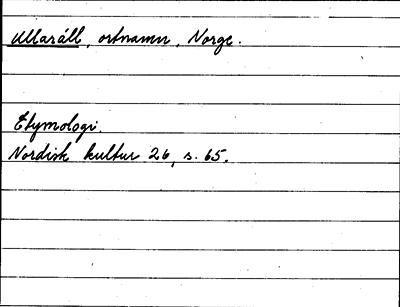 Ullaráll, ortnamn, Norge.
Etymologi.
Nordisk kultur 26, s. 65.